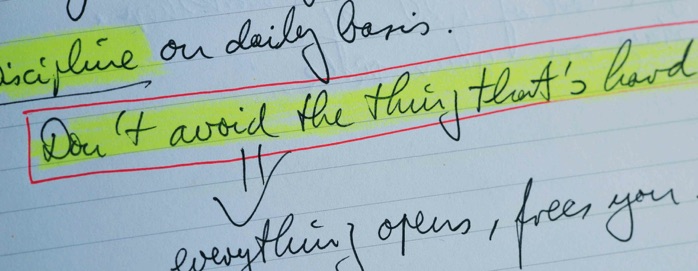 iscipline on daily basis.
Don't avoid the thing that's hard
everything opens, frees you.